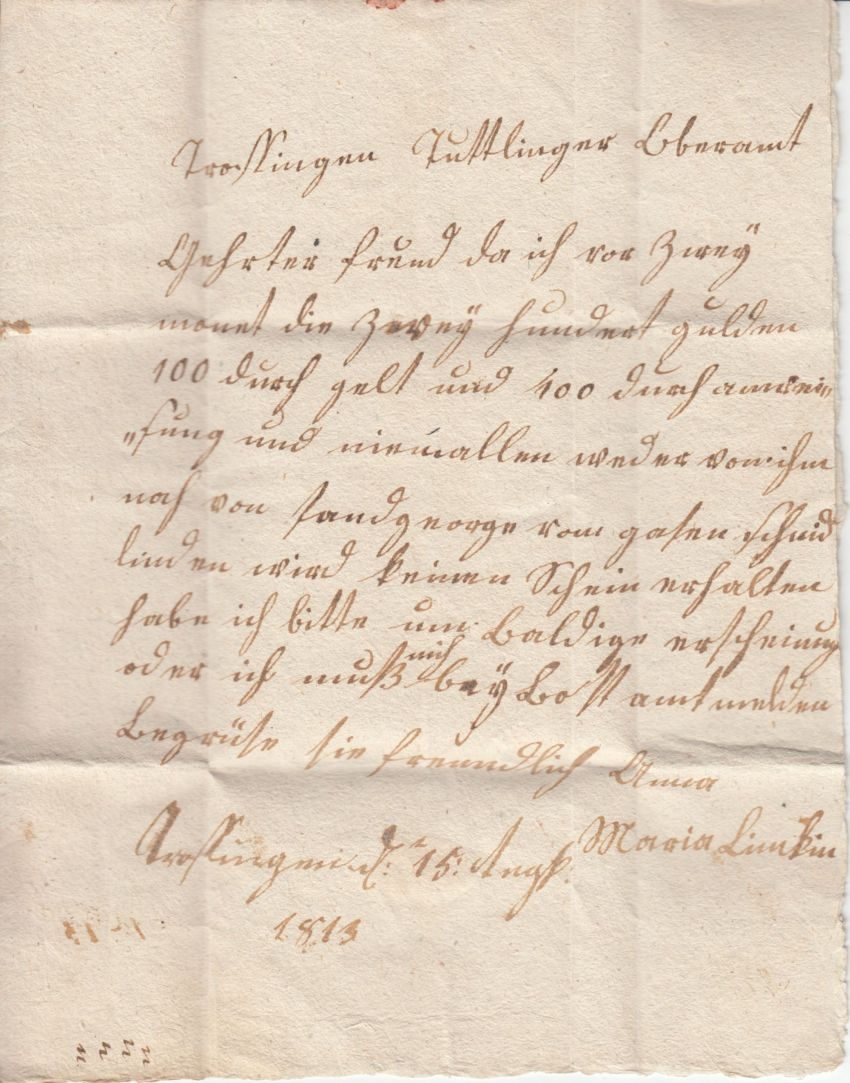 Trossingen Tuttlinger Oberamt
Gehrter freund da ich vor Zwey
monet die Zwey hundert gulden
100 durch gelt und 100 durch anwei„
„sung und niemallen weder von ihm
noch von
linden wird keinen Schein erhalten
habe ich bitte um Baldige erscheinung
oder ich muß mich bey Bostamt melden
Begrüse sie freundlich Anna
Maria
Trossingen d: 15:
1813